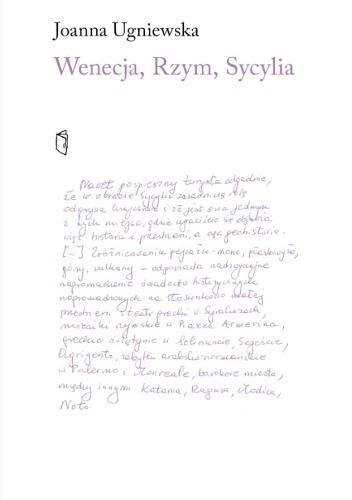 Joanna Ugniewska
Wenecja, Rzym, Sycylia
Nawet pospieszny turysta odgadnie,
że w obrazie Sycylii zasadniczą rolę
odgrywa krajobraz i że jest ona jednym
z tych miejsc, gdzie upatruje się
więź historii i przestrzeni, a geohistorię.
[...] Zróżnicowaniu pejzażu – morze, płaskowyże,
góry, wulkany – odpowiada nadzwyczajne
nagromadzenie osadów historycznych
nagromadzonych na stosunkowo małej
przestrzeni: teatr grecki w Syrakuzach,
mozaiki rzymskie w Piazza Armerina,
greckie świątynie w Selinuncie, Segeście,
Agrigento, zabytki arabsko-normańskie
w Palermo i Monreale, barokowe miasta,
między innymi Katania, Ragusa, Modica,
Noto.